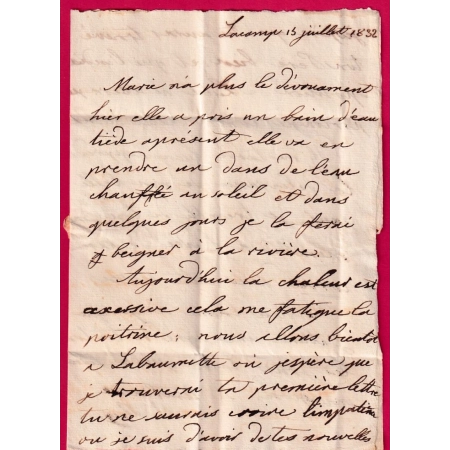 Lacamp 15 juillet 1832
Marie n'a plus le dévouament
hier elle a pris un bain d'eau
tiède aprésent elle va en
prendre un dans de l'eau
chauffé au soleil et dans
quelques jours je la ferai
beigner à la rivière.
Aujourd'hui la chaleur est
excessive cela me fatigue la
poitrine; nous allons bientot
a Labaumette où jespère que
je trouverai ta première lettre
tu ne saurais croire l'impatience
ou je suis d'avoir de tes nouvelles